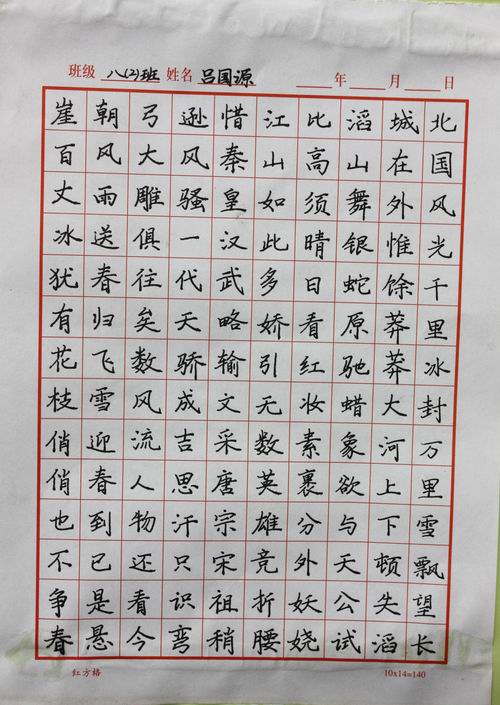 班级 八(2)班 姓名 吕国源 年 月 日
北国风光千里冰封万里雪飘望长
城在外惟馀莽莽大河上下顿失滔
滔山舞银蛇原驰蜡象欲与天公试
比高须晴日看红妆素裹分外妖娆
江山如此多娇引无数英雄竞折腰
惜秦皇汉武略输文采唐宗宋祖稍
逊风骚一代天骄成吉思汗只识弯
弓大雕俱往矣数风流人物还看今
朝风雨送春归飞雪迎春到已是悬
崖百丈冰犹有花枝俏俏也不争春
红方格 10x14=140